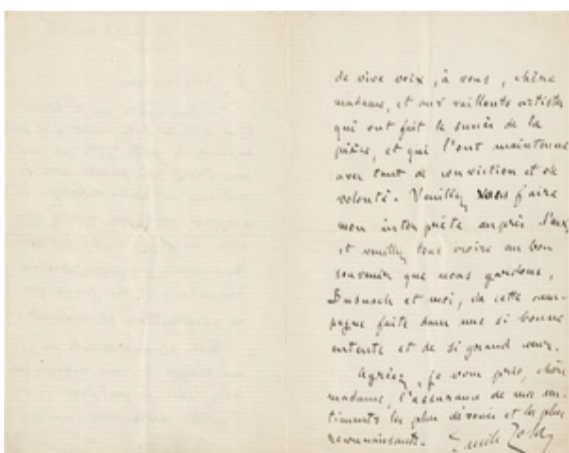 de vive voix, à vous, chère
madame, et aux vaillants artistes
qui ont fait le succès de la
pièce, et qui l'ont maintenue
avec tant de conviction et de
volonté. Veuillez vous faire
mon interprète auprès d'eux,
et veuillez tous croire au bon
souvenir que nous gardons,
Busnach et moi, de cette cam-
pagne faite dans une si bonne
entente et de si grand cœur.
Agréez, je vous prie, chère
madame, l'assurance de mes sen-
timents les plus dévoués et les plus
reconnaissants. Emile Zola